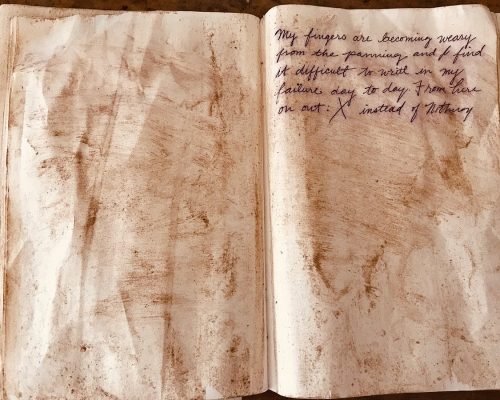 My fingers are becoming weary
from the panning and I find
it difficult to writ in my
failure day to day. From here
on out: X instead of Nothing